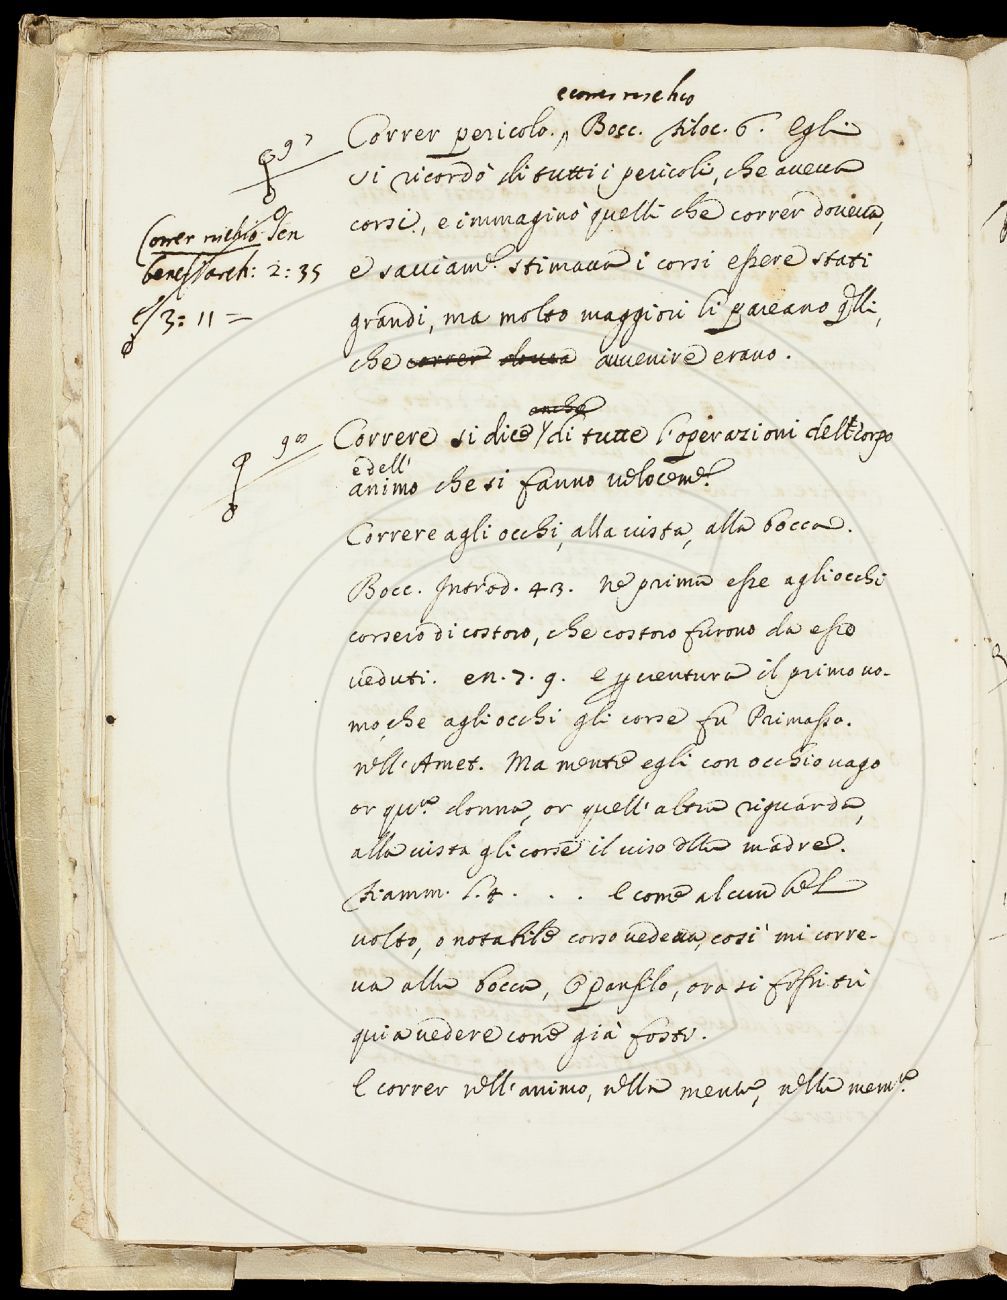 e correr rischio
9 7
Correr pericolo. ^ Bocc. Filoc. 6. Egli
si ricordò di tutti i pericoli, che aveva
corsi, e immaginò quelli che correr doveva,
Correr rischio Sen
ben: Varch: 2: 35
e sacciam.te stimava i corsi essere stati
3: 11 =
grandi, ma molto maggiori li pareano q̃lli,
che correr dovea avvenire erano.
anche
9 8
Correre si dice di tutte l'operazioni dell corpo
e dell'
animo che si fanno velocem.te
Correre agli occhi, alla vista, alla bocca.
Bocc. Introd. 43. Nè prima esse agli occhi
corsero di costoro, che costoro furono da esse
veduti. e n. 7. 9. E p ventura il primo uo-
mo, che agli occhi gli corse fu Primasso.
nell'Amet. Ma mentre egli con occhio vago
or qu.ta donna, or quell'altra riguarda,
alla vista gli corse il viso dlla madre.
Fiamm. l. 4. . . E come alcun bel
volto, o notabile corso vedeva, così mi corre-
va alla bocca, O panfilo, ora si fossi tù
qui a vedere come già fosti.
E correr nell'animo, nella mente, nella mem.ia